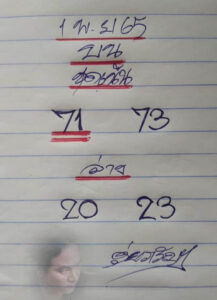 1 พ.ย 65
บน
ชุดเน้น
71 73
ล่าง
20 23